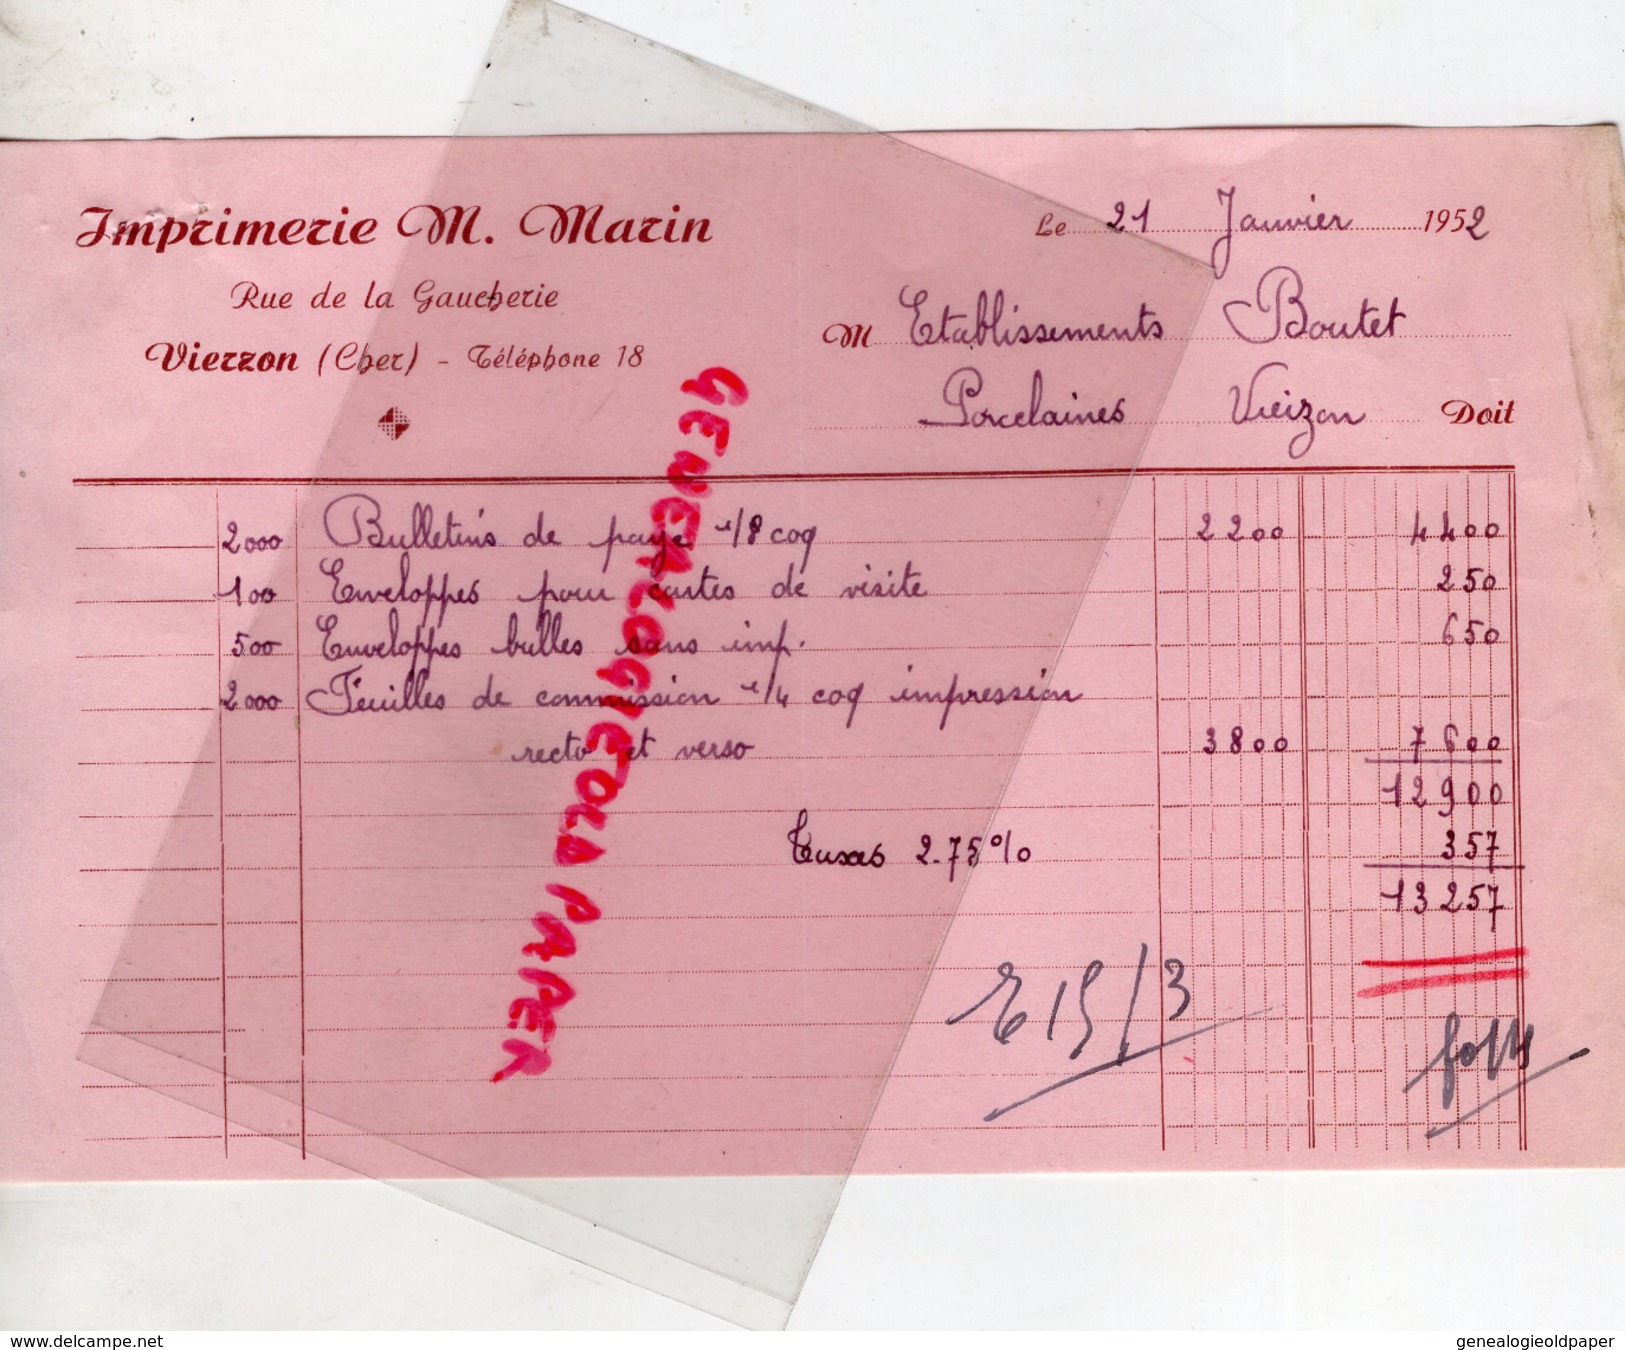 Imprimerie M. Marin
Rue de la Gaucherie
Vierzon (Cher) - Téléphone 18
Le 21 Janvier 1952
M Etablissements Boutet
Porcelaines Vierzon Doit
2000 Bulletins de paye 1/8 coq 2200 4400
100 Enveloppes pour cartes de visite 250
500 Enveloppes bulles sans imp. 650
2000 Feuilles de commission 1/4 coq impression
recto et verso 3800 7600
12900
Taxes 2.75% 357
13257
GENEALOGIEOLD PAPER
www.delcampe.net
genealogieoldpaper